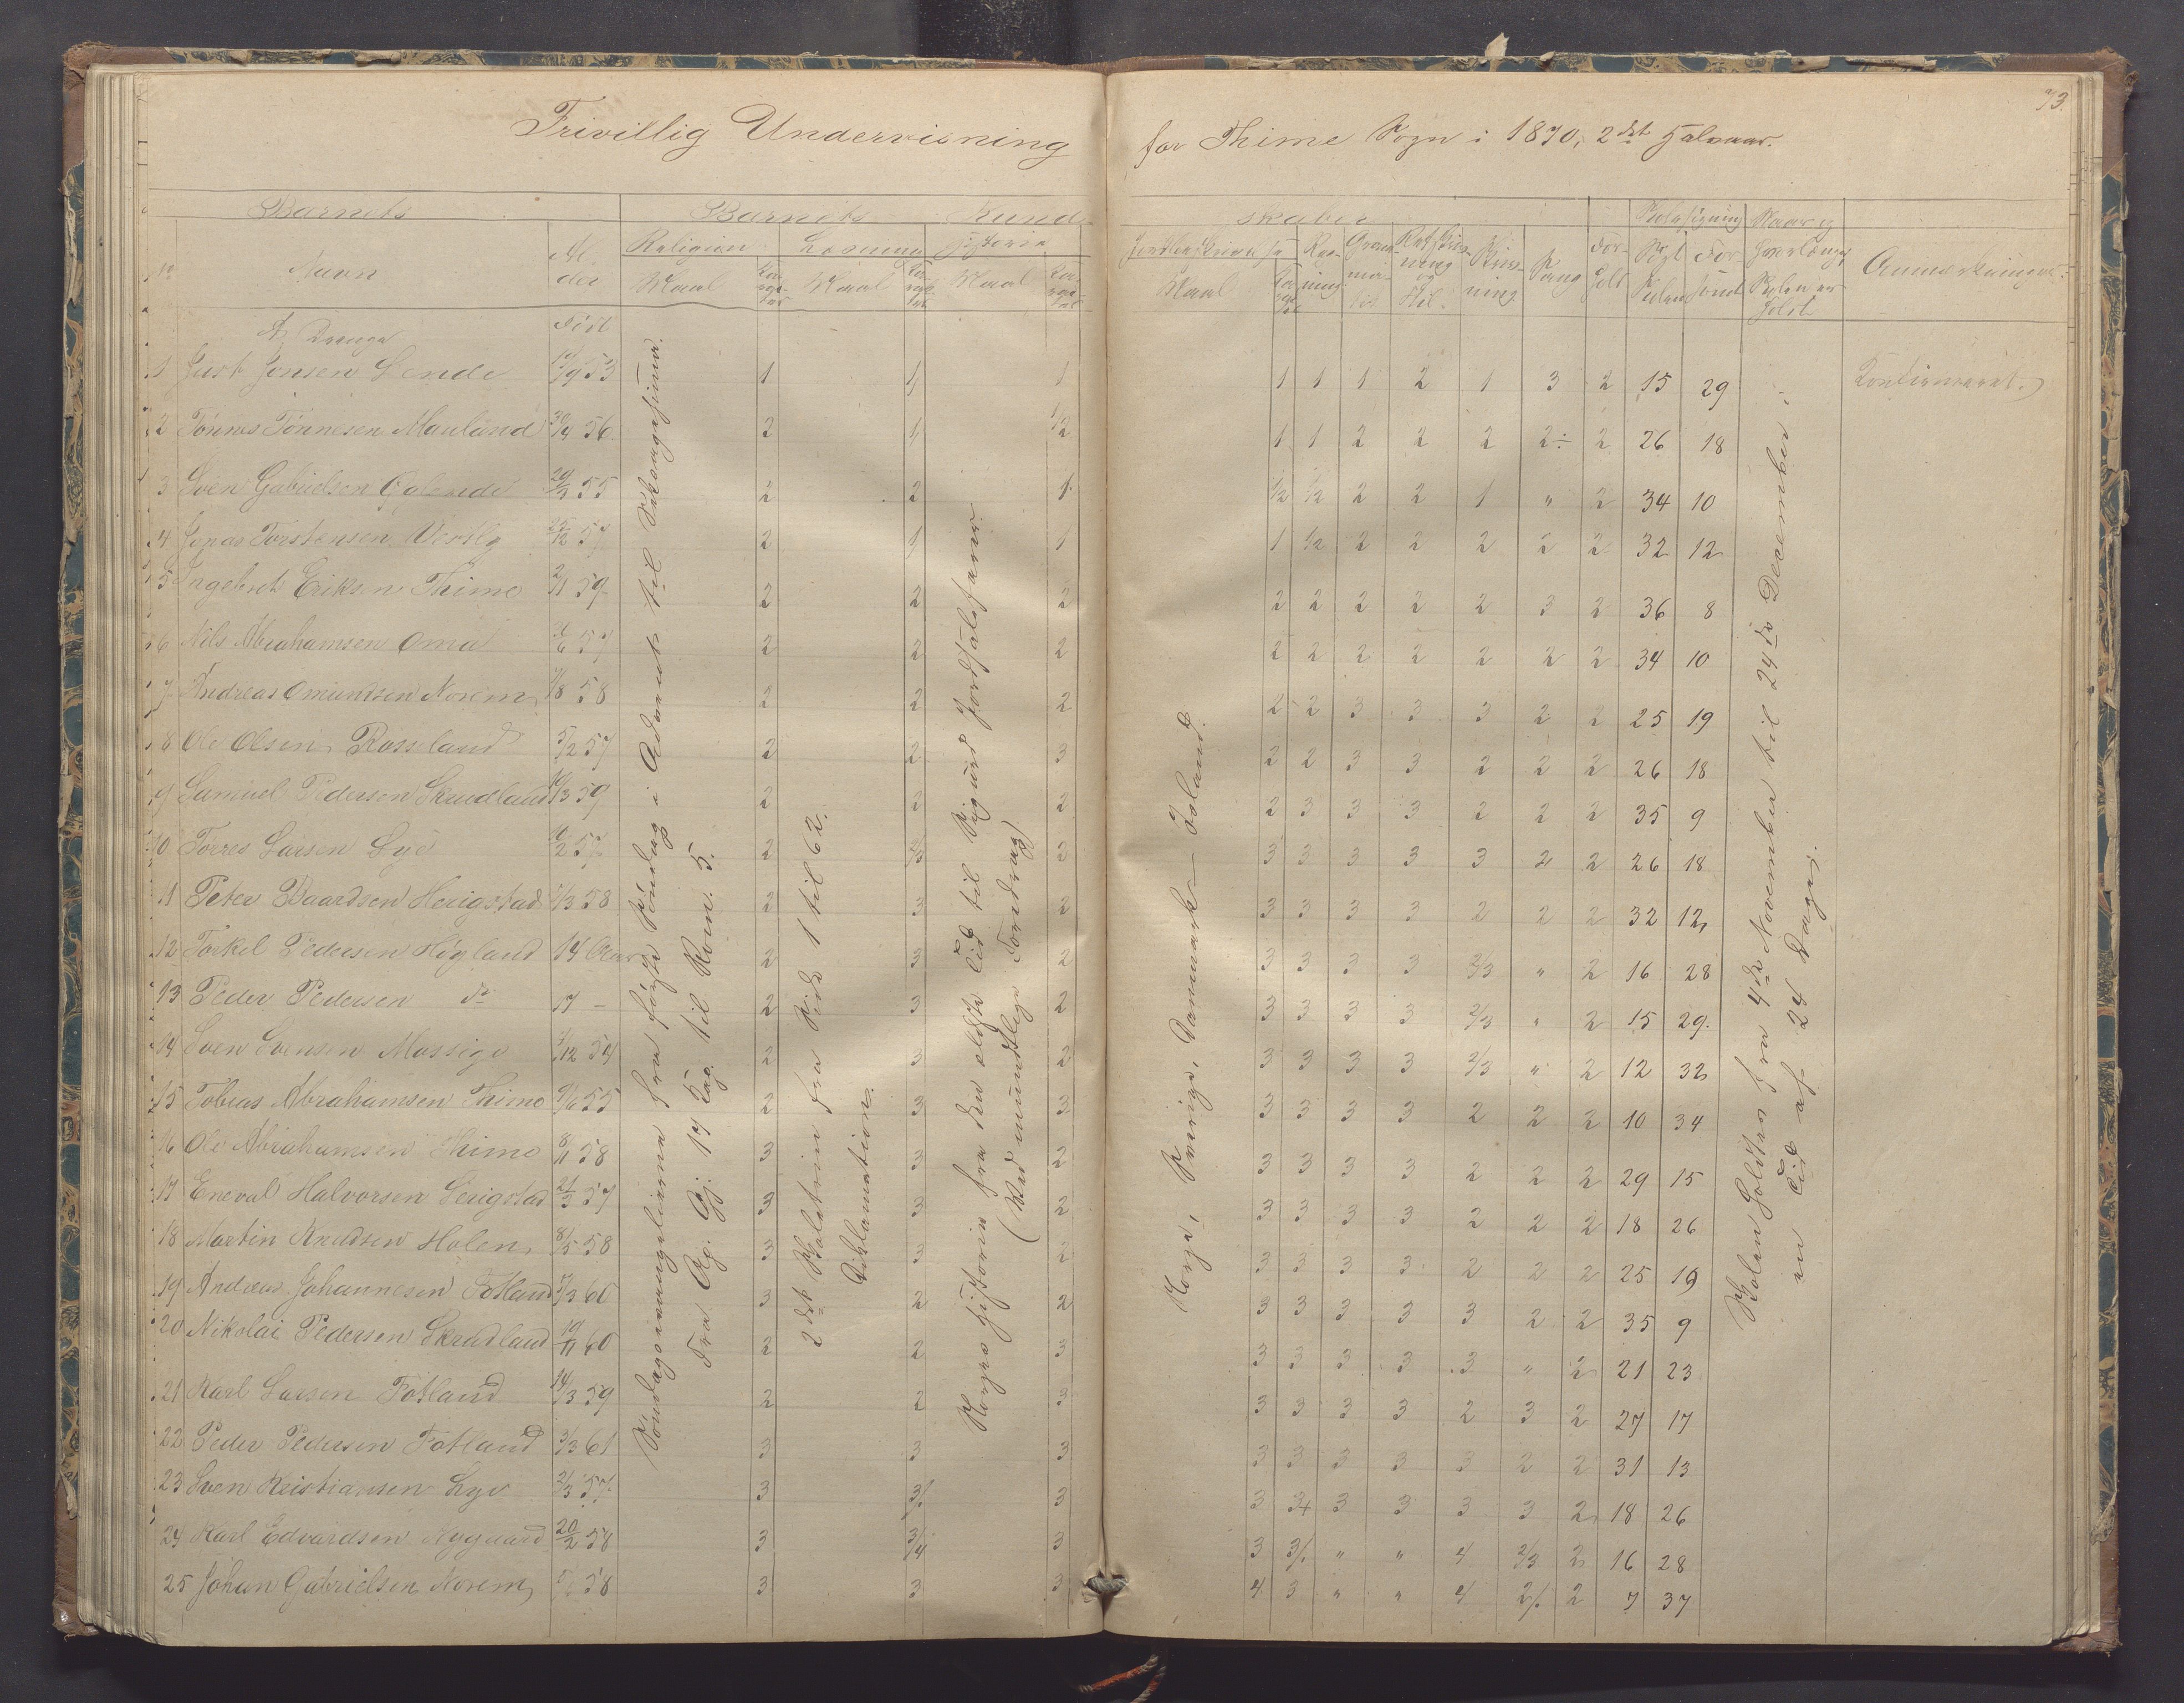 73.
Frivillig Undervisning for Thime Sogn i 1870, 2det Halvaar.
Barnets Barnets Kundskaber Skolesøgning
No Navn Alder Religion Læsning Historie Jordbeskrivelse Regning Sang Forhold Søgt Skolen Forsømt Anmærkninger.
Maal Karakter Maal Karakter Maal Karakter Maal Karakter
A, Drenge Født
1 Just Jonsen Lende 53 1 1 1 1 1 1 2 1 3 2 15 29 Konfirmeret.
2 Tønnes Tønnesen Mauland 56 2 1 1/2 1 1 2 2 2 2÷ 2 26 18
3 Sven Gabrielsen 55 2 2 1 1/2 1/2 2 2 1 " 2 34 10
4 Jonas Torstensen 57 2 1 1 1 1/2 2 2 2 2 2 32 12
5 Ingebret Eriksen Thime 2/1 59 2 2 2 2 2 2 2 2 3 2 36 8
6 Nils Abrahamsen Oma 57 2 2 2 2 2 2 2 2 2 2 34 10
7 Andreas Omundsen Norem 58 2 2 2 2 2 3 3 3 2 2 25 19
8 Ole Olsen Rossland 5/2 57 2 2 3 2 2 3 3 2 2 2 26 18
9 Samuel Pedersen Skrudland 59 2 2 2 2 3 3 3 2 2 2 35 9
10 Torres Larsen Lye 2 2/3 2 3 3 3 3 3 2 2 26 18
11 Peter Baardsen Herigstad 58 2 3 2 3 3 3 3 2 2 2 32 12
12 Torkel Pedersen Høyland 14 Aar 2 3 2 3 3 3 3 2/3 " 2 16 28
13 Peder Pedersen do 17 – 2 3 2 3 3 3 3 2/3 " 2 15 29.
14 Sven Svensen Mossige 54 2 3 2 3 3 3 3 2/3 " 2 12 32
15 Tobias Abrahamsen Thime 55 2 3 3 3 3 3 3 2 2 2 10 34
16 Ole Abrahamsen Thime 8/11 58 3 3 2 3 3 3 3 2 2 2 29 15
17 Eneval Halvorsen Serigstad 21/3 57 3 3 2 3 3 3 3 2 2 2 18 26
18 Martin Knudsen Holen 8/5 58 3 3 2 3 3 3 3 2 2 2 25 19
19 Andreas Johannesen Fotland 60 3 2 2 3 3 3 3 3 2 2 35 9
20 Nikolai Pedersen Skrudland 19/11 60 2 2 3 3 3 3 3 3 " 2 21 23
21 Karl Larsen Fotland 14/3 59 2 2 3 3 3 3 3 2 3 2 27 17
22 Peder Pedersen Fotland 3/3 61 3 3 3 3 3 3 3 3 2 2 31 13
23 Sven Kristiansen Lye 57 3 3 3 3 3 3 3 3 2 18 26
24 Karl Edvardsen Nygaard 20/2 58 3 3/4 3 3 " " 4 2/3 2 16 28
25 Johan Gabrielsen Norem 58 3 3 3 4 3 " " 4 2 7 37
Søndagsevangelierne fra første Søndag i Advent til
Fra Ap. Gj. 17 Kap. til Rom. 5.
2det Skoletrin fra Side 1 til 62.
Diklamation.
Norges Historie fra den ældste Tid til Sigurd Jorsalafarer
(Ved mundtlige Foredrag)
Norge, Sverige, Danmark – Island.
Skolen holdtes fra 4de November til 24de December i
en Tid af 24 Dage.